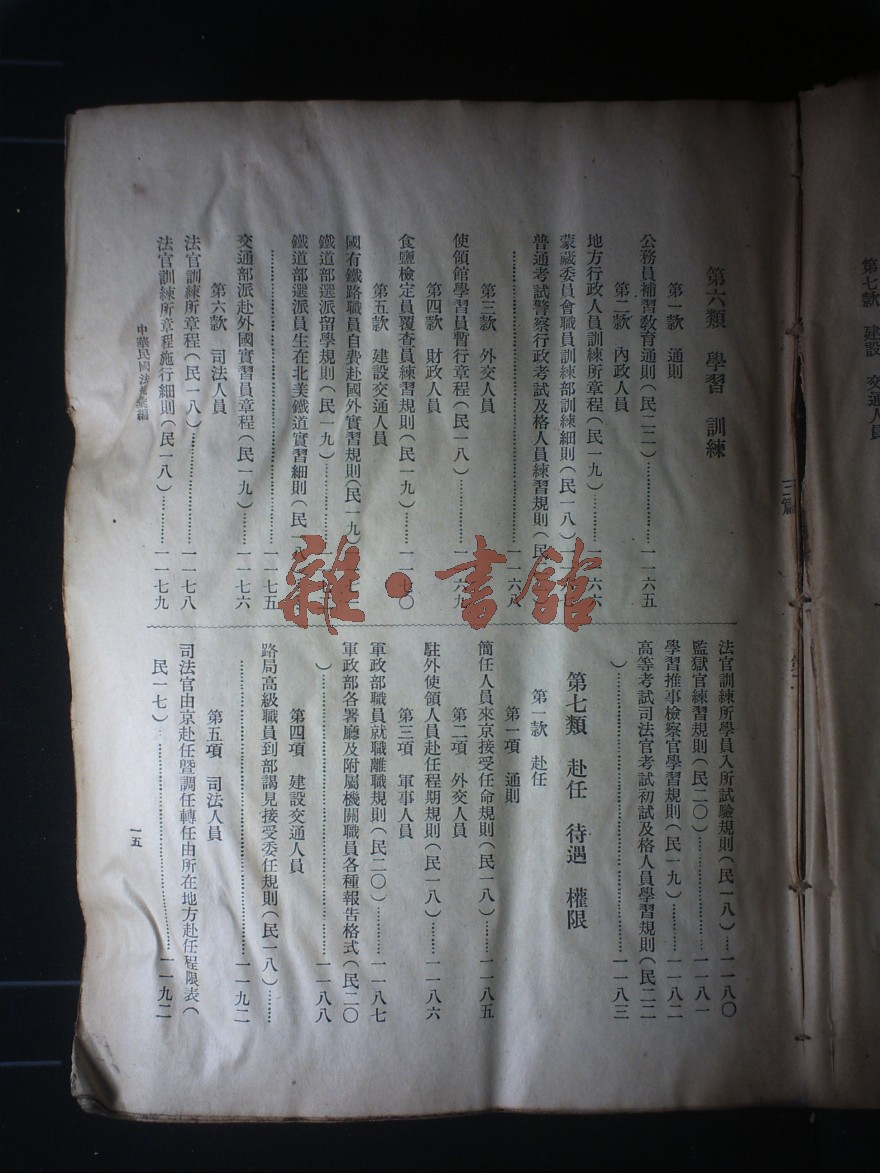 第六類 學習 訓練
第一款 通則
公務員補習敎育通則(民二二)……一一六五
第二款 內政人員
地方行政人員訓練所章程(民一九)……一一六六
蒙藏委員會職員訓練部訓練細則(民一八)
普通考試警察行政考試及格人員練習規則(民
……一一六八
第三款 外交人員
使領館學習員暫行章程(民一八)……一一六九
第四款 財政人員
食鹽檢定員覆查員練習規則(民一九)……一一七〇
第五款 建設交通人員
國有鐵路職員自費赴國外實習規則(民一九)
鐵道部選派留學規則(民一九)
鐵道部選派員生在北美鐵道實習細則(民
……一一七五
交通部派赴外國實習員章程(民一九)……一一七六
第六款 司法人員
法官訓練所章程(民一八)……一一七八
法官訓練所章程施行細則(民一八)……一一七九
法官訓練所學員入所試驗規則(民一八)……一一八〇
監獄官練習規則(民二〇)……一一八一
學習推事檢察官學習規則(民一九)……一一八二
高等考試司法官考試初試及格人員學習規則(民二二
)……一一八三
第七類 赴任 待遇 權限
第一款 赴任
第一項 通則
簡任人員來京接受任命規則(民一八)……一一八五
第二項 外交人員
駐外使領人員赴任程期規則(民一八)……一一八六
第三項 軍事人員
軍政部職員就職離職規則(民二〇)……一一八七
軍政部各署廳及附屬機關職員各種報告格式(民二〇
)……一一八八
第四項 建設交通人員
路局高級職員到部謁見接受委任規則(民一八)……
……一一九二
第五項 司法人員
司法官由京赴任暨調任轉任由所在地方赴任程限表(
民一七)……一一九二
中華民國法規彙編
一五
三篇
第七款 建設 交通人員
雜·書館